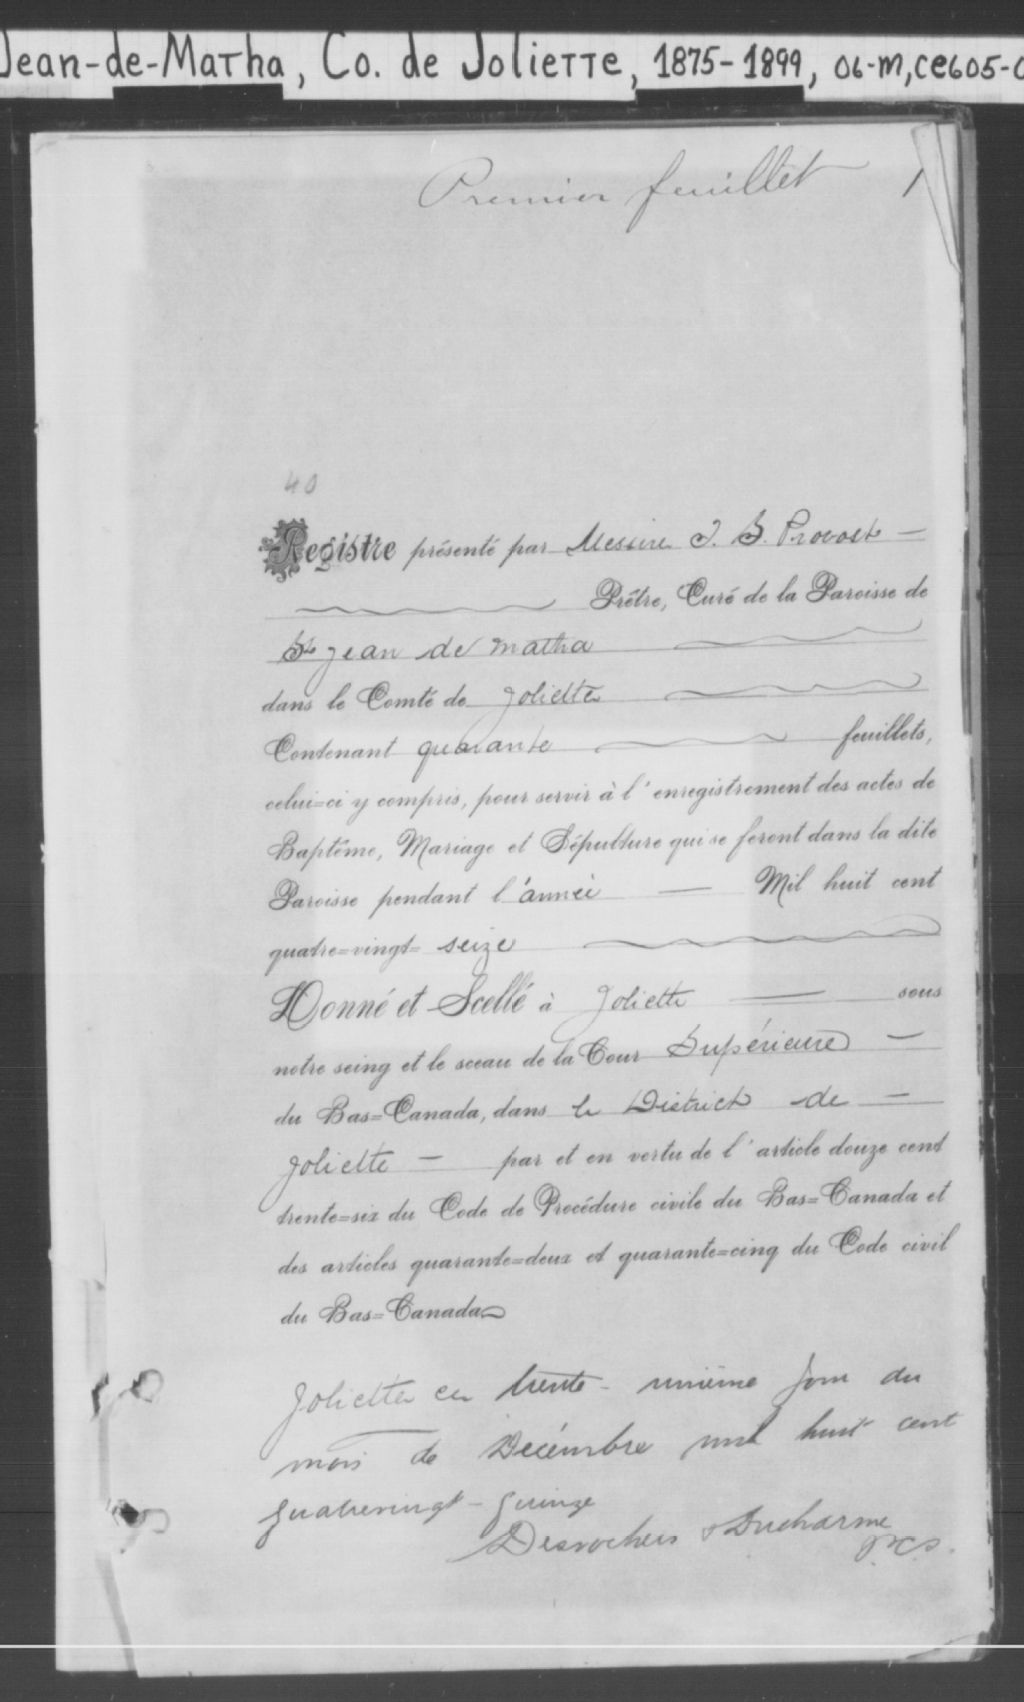 Jean-de-Matha, Co. de Joliette, 1875-1899, 06-M, CE605-
Premier feuillet 1
40
Registre présenté par Messire J. B. Provost —
Prêtre, Curé de la Paroisse de
St Jean de Matha
dans le Comté de Joliette
Contenant quarante feuillets,
celui=ci y compris, pour servir à l'enregistrement des actes de
Baptême, Mariage et Sépulture qui se feront dans la dite
Paroisse pendant l'année — Mil huit cent
quatre=vingt= seize
Donné et Scellé à Joliette — sous
notre seing et le sceau de la Cour Supérieure —
du Bas=Canada, dans le District de —
Joliette — par et en vertu de l'article douze cent
trente=six du Code de Procédure civile du Bas=Canada et
des articles quarante=deux et quarante=cinq du Code civil
du Bas=Canada
Joliette ce trente-unième jour du
mois de Décembre mil huit cent
quatrevingt-quinze
Desrochers & Ducharme
P.C.S.